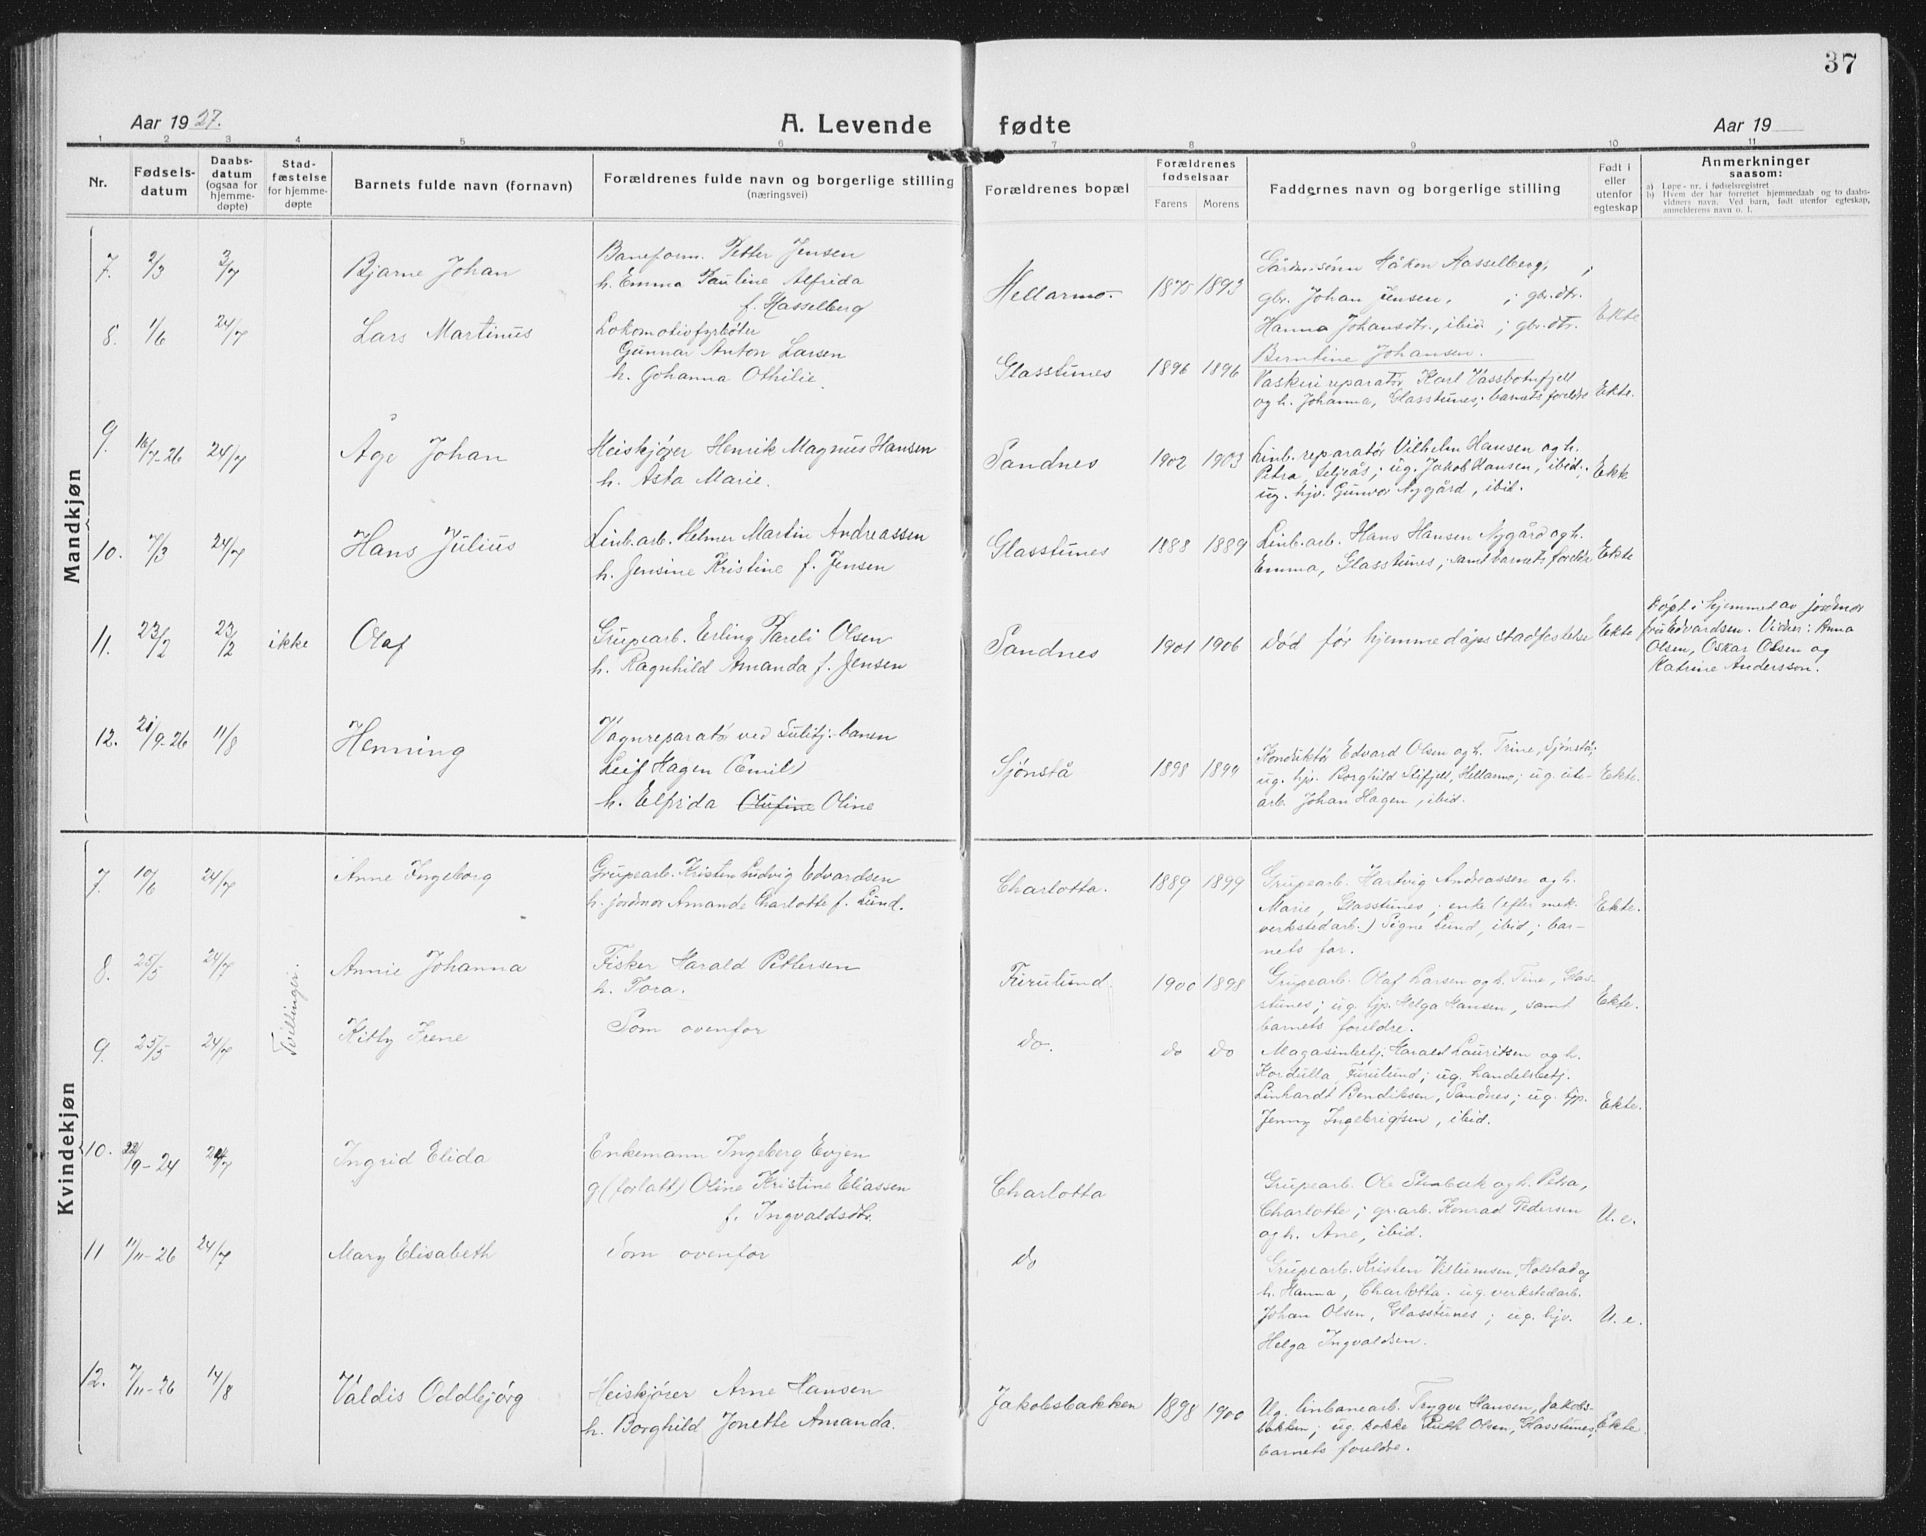 37
Aar 1927.
A. Levende fødte
Aar 19
1 2 3 4 5 6 7 8 9 10 11
Nr.
Fødsels-
datum
Daabs-
datum
(ogsaa for
hjemme-
døpte)
Stad-
fæstelse
for hjemme-
døpte
Barnets fulde navn (fornavn)
Forældrenes fulde navn og borgerlige stilling
(næringsvei)
Forældrenes bopæl
Forældrenes
fødselsaar
Farens Morens
Faddernes navn og borgerlige stilling
Født i
eller
utenfor
egteskap
Anmerkninger
saasom:
a) Løpe-nr. i fødselsregistret
b) Hvem der har forrettet hjemmedaab og to daabs-
vidners navn. Ved barn, født utenfor egteskap,
anmelderens navn o. l.
Mandkjøn
7. 2/3 3/7 Bjarne Johan
Baneform. Petter Jensen
h. Emma Pauline Alfrida
f. Hasselberg
Hellarmo. 1875 1893
Gårdm.sønn Håkon Hasselberg,
gbr. Johan Jensen, ; gbr.dtr.
Hanna Johansdtr., ibid ; gbr.dtr.
Berntine Johansen.
Ekte
8. 1/6 24/7 Lars Martinus
Lokomotivfyrbøter
Gunnar Anton Larsen
h. Johanna Othilie.
Glasstunes 1896 1896
Vaskeri reparatør Karl Vassbotnfjell
og h. Johanna, Glasstunes; barnets foreldre
Ekte.
9. 16/7-26 24/7 Åge Johan
Heiskjører Henrik Magnus Hansen
h. Asta Marie.
Sandnes 1902 1903
Linb.reparatør Vilhelm Hansen og h.
Petra, ; ug. Jakob Hansen, ibid.;
ug. hjv. Gunvor Nygård, ibid.
Ekte
10. 7/3 24/7 Hans Julius
Linb.arb. Helmer Martin Andreassen
h. Jensine Kristine f. Jensen
Glasstunes 1888 1889
Linb.arb. Hans Hansen Nygård og h.
Emma, Glasstunes; samt barnets foreldre
Ekte
11. 23/2 23/2 ikke Olaf
Grupearb. Erling Pareli Olsen
h. Ragnhild Amanda f. Jensen
Sandnes 1901 1906
Død før hjemmedåps stadfestelse
Ekte
Døpt i hjemmet av jordmor
fru Edvardsen. Vidner: Anna
Olsen, Oskar Olsen og
Katrine Andersson.
12. 21/9-26 11/8 Henning
Vagnreparatør ved Sulitj.-banen
Leif Hagen (Emil)
h. Elfrida Olufine Oline
Sjønstå 1898 1899
Konduktør Edvard Olsen og h. Trine, Sjønstå;
ug. hjv. Borghild Stifjell, Hellarmo; ug. ute-
arb. Johan Hagen, ibid.
Ekte.
Kvindekjøn
7. 10/6 24/7 Anne Ingeborg
Grupearb. Kristen Ludvig Edvardsen
h. jordmor Amande Charlotte f. Lund.
Charlotta. 1889 1899
Grupearb. Hartvig Andreassen og h.
Marie, Glasstunes; enke (efter mek.
verkstedarb.) Signe Lund, ibid; bar-
nets far.
Ekte.
8. 25/5 24/7 Tvillinger. Annie Johanna
Fisker Harald Pettersen
h. Tora.
Furulund. 1900 1898
Grupearb. Olaf Larsen og h. Tine, Glas-
stunes; ug. tjp. Helga Hansen, samt
barnets foreldre.
Ekte.
9. 25/5 24/7 Kitty Irene
Som ovenfor
do. do do
Magasinbetj. Harald Lauritsen og h.
Kordulla, Furulund; ug. handelsbetj.
Linhardt Bendiksen, Sandnes; ug. tjp.
Jenny Ingebrigtsen, ibid.
Ekte.
10. 22/9-24 24/7 Ingrid Elida
Enkemann Ingeberg Evjen
g (forlatt) Oline Kristine Eliassen
f. Ingvaldsdtr.
Charlotta
Grupearb. Ole Stenbæk og h. Petra,
Charlotte; gr.arb. Konrad Pedersen
og h. Ane, ibid.
U. e.
11 11/11-26 24/7 Mary Elisabeth
Som ovenfor
do
Grupearb. Kristen Villumsen, Holstad og
h. Hanna, Charlotta; ug. verkstedarb.
Johan Olsen, Glasstunes; ug. hjv.
Helga Ingvaldsen.
U. e.
12. 7/11-26 14/8 Valdis Oddbjørg
Heiskjører Arne Hansen
h. Borghild Jonette Amanda.
Jakobsbakken 1898 1900
Ug. linbanearb. Trygve Hansen, Jakobs-
bakken; ug. kokke Ruth Olsen, Glasstunes,
barnets foreldre.
Ekte.